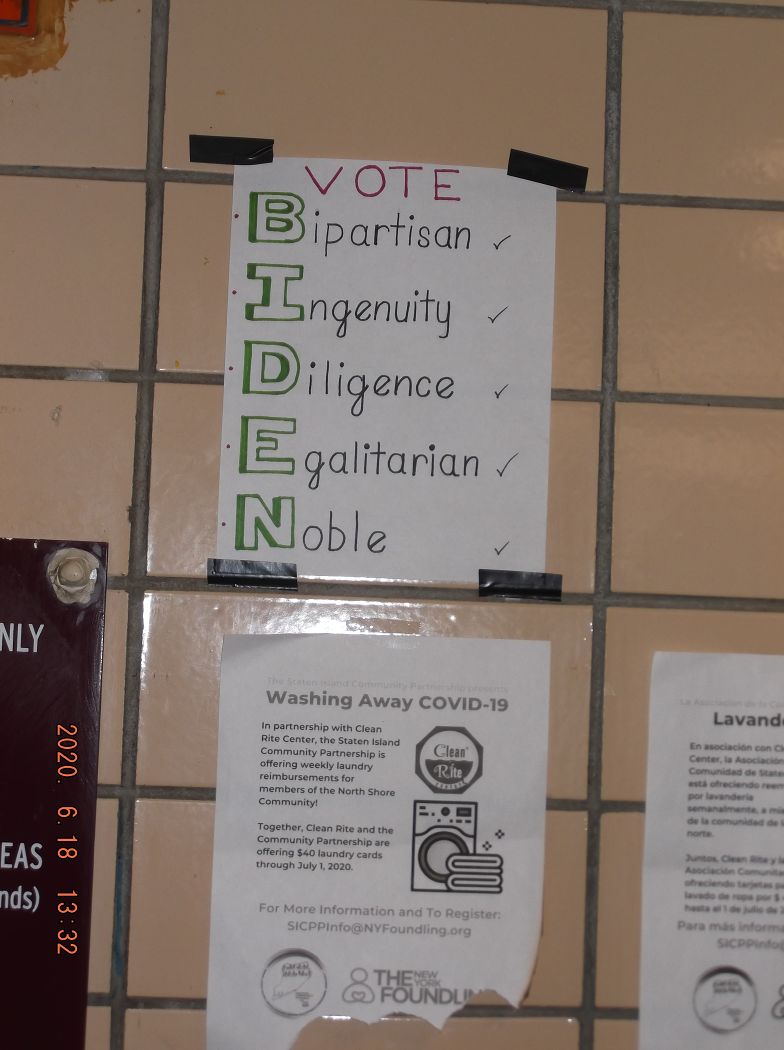 VOTE
Bipartisan ✓
Ingenuity ✓
Diligence ✓
Egalitarian ✓
Noble ✓
The Staten Island Community Partnership presents
Washing Away COVID-19
In partnership with Clean
Rite Center, the Staten Island
Community Partnership is
offering weekly laundry
reimbursements for
members of the North Shore
Community!
Together, Clean Rite and the
Community Partnership are
offering $40 laundry cards
through July 1, 2020.
Clean
Rite
CENTERS
For More Information and To Register:
SICPPInfo@NYFoundling.org
THE NEW YORK
FOUNDLIN
La Asociación de la Co
Lavand
En asociación con Cl
Center, la Asociación
Comunidad de State
está ofreciendo reem
por lavandería
semanalmente, a mi
de la comunidad de l
norte.
Juntos, Clean Rite y l
Asociación Comunita
ofreciendo tarjetas
lavado de ropa por $
hasta el 1 de julio de
Para más informa
SICPPInfo@
NLY
EAS
nds)
2020. 6.18 13:32